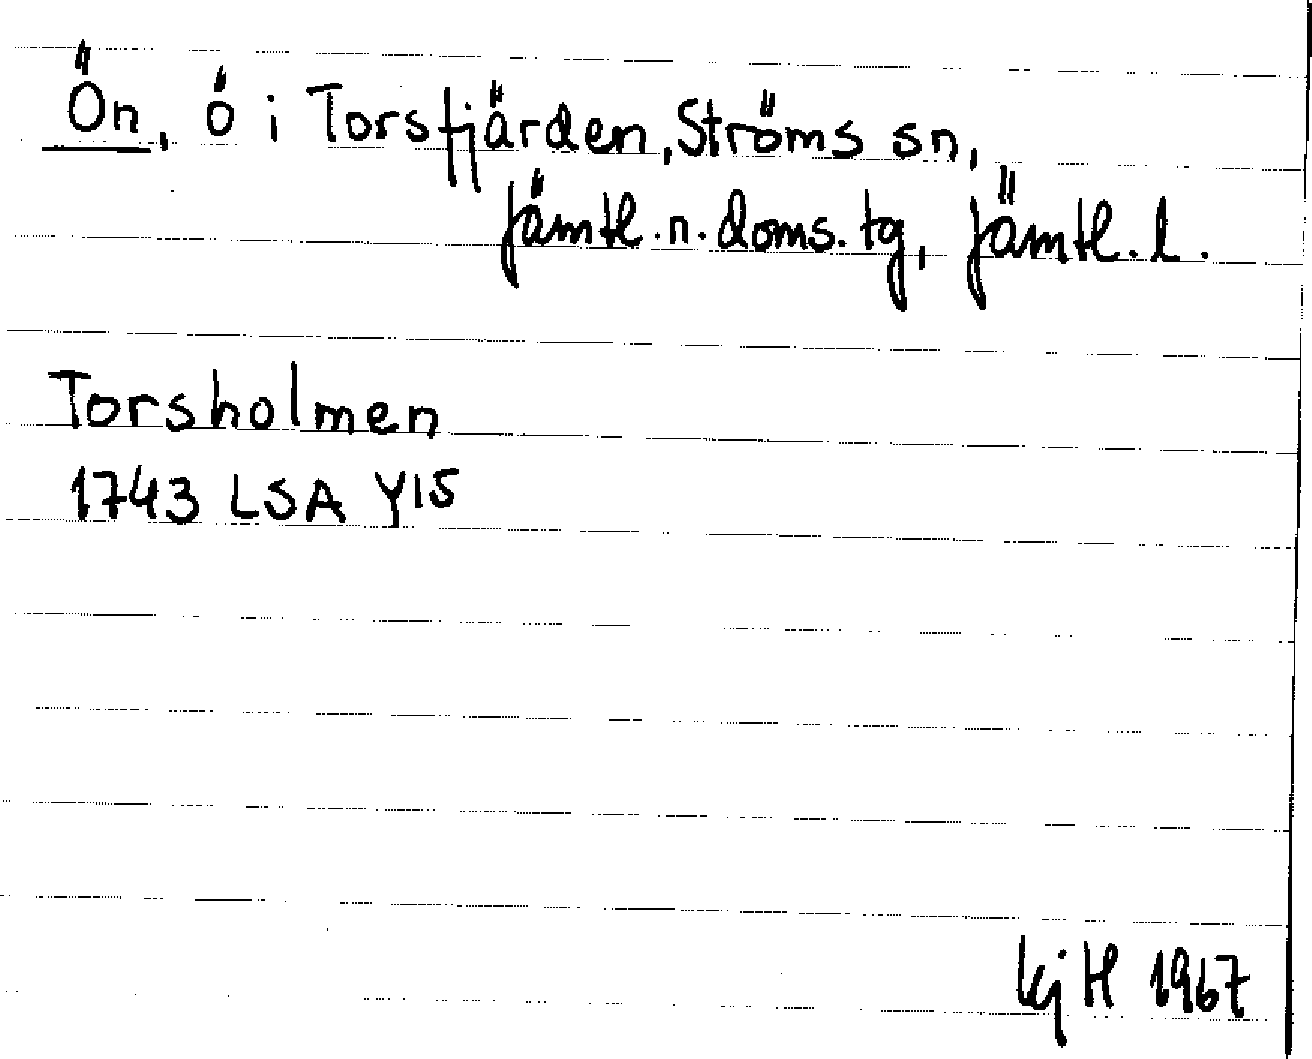 Ön, ö i Torsfjärden, Ströms sn,
Jämtl. n. doms. tg, Jämtl. l.
Torsholmen
1743 LSA Y15
kj H 1967